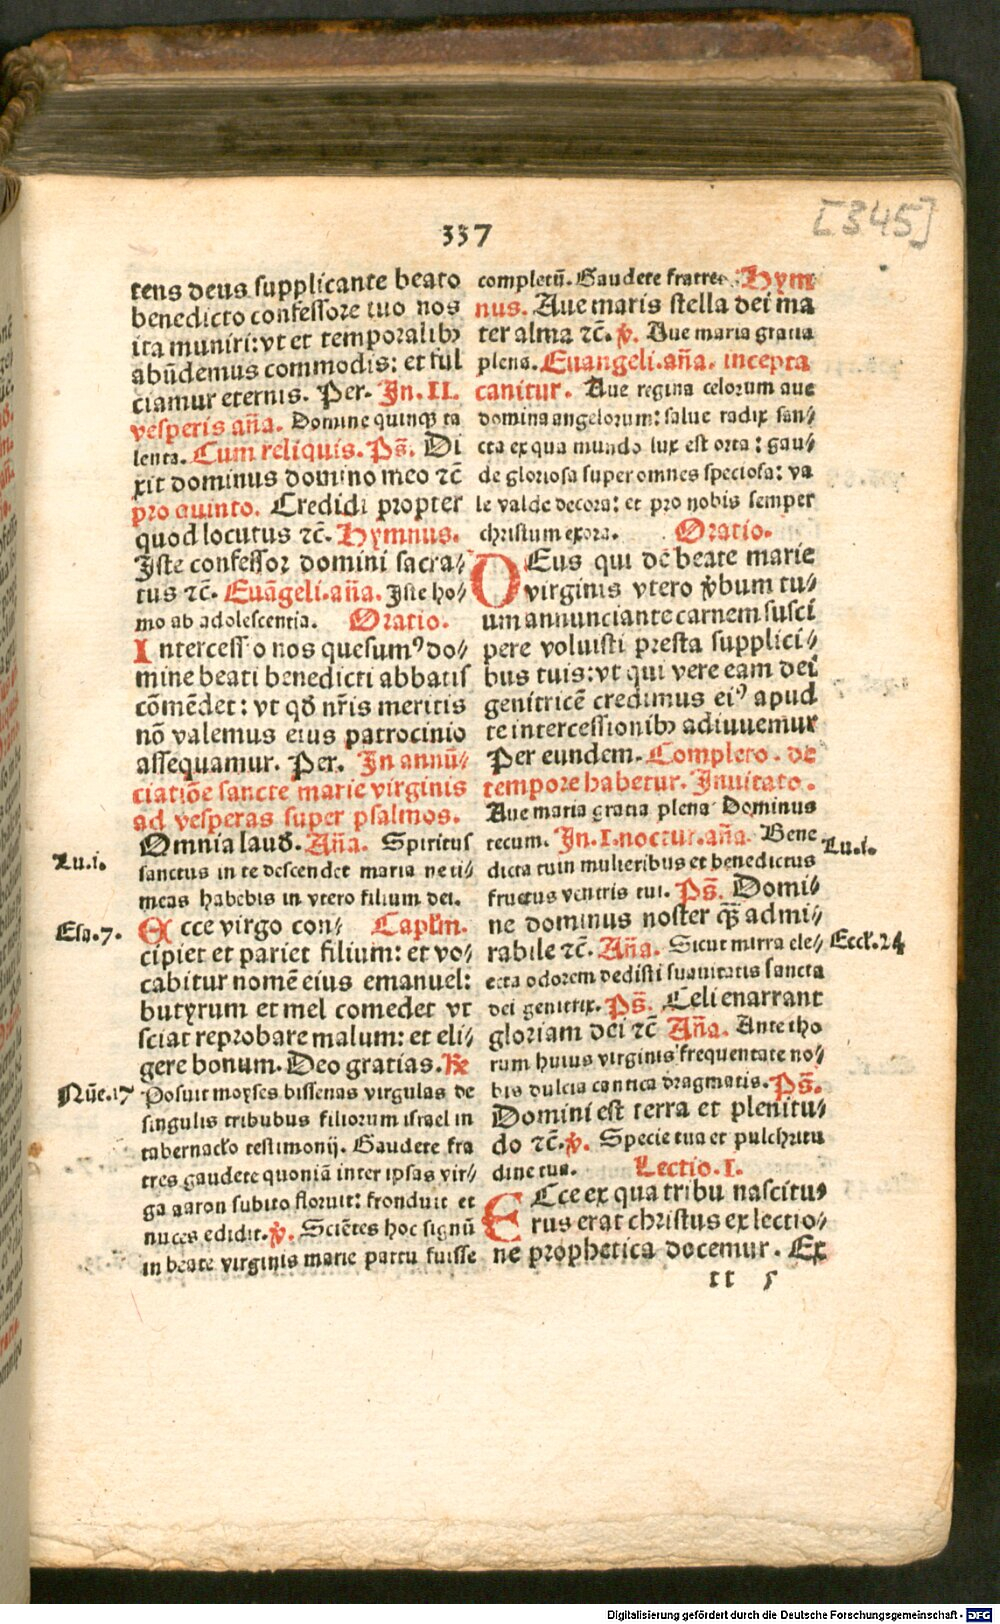 337
[345]
tens deus supplicante beato
benedicto confessore tuo nos
ita muniri: vt et temporalibꝫ
abūdemus commodis: et ful
ciamur eternis. Per. In. II.
vesperis an̄a. Domine quinqꝫ ta
lenta. Cum reliquis. Ps̄. Di
xit dominus domino meo ⁊c̄
pro quinto. Credidi propter
quod locutus ⁊c̄. Hymnus.
Iste confessor domini sacra/
tus ⁊c̄. Euāgeli. an̄a. Iste ho/
mo ab adolescentia. Oratio.
Intercessio nos quesumꝰ do/
mine beati benedicti abbatis
cōmēdet: vt qđ nr̄is meritis
nō valemus eius patrocinio
assequamur. Per. In annū/
ciatiōe sancte marie virginis
ad vesperas super psalmos.
Omnia lauđ. An̄a. Spiritus
Lu.i.
sanctus in te descendet maria ne ti/
meas habebis in vtero filium dei.
Esa.7.
Ecce virgo con/ Capłm.
cipiet et pariet filium: et vo/
cabitur nomē eius emanuel:
butyrum et mel comedet vt
sciat reprobare malum: et eli/
gere bonum. Deo gratias. ℟
Nūe.17
Posuit moyses bissenas virgulas de
singulis tribubus filiorum israel in
tabernacło testimonij. Gaudete fra
tres gaudete quoniā inter ipsas vir/
ga aaron subito floruit: fronduit et
nuces edidit. ℣. Sciētes hoc signū
in beate virginis marie partu fuisse
completū. Gaudete fratres. Hym
nus. Aue maris stella dei ma
ter alma ⁊c̄. ℣. Aue maria gratia
plena. Euangeli. an̄a. incepta
canitur. Aue regina celorum aue
domina angelorum: salue radix san/
cta ex qua mundo lux est orta: gau/
de gloriosa super omnes speciosa: va
le valde decora: et pro nobis semper
christum exora. Oratio.
DEus qui dē beate marie
virginis vtero ꝟbum tu/
um annunciante carnem susci
pere voluisti presta supplici/
bus tuis: vt qui vere eam dei
genitricē credimus eiꝰ apud
te intercessionibꝫ adiuuemur
Per eundem. Completo. de
tempore habetur. Inuitato.
Aue maria gratia plena Dominus
tecum. In. I. noctur. an̄a. Bene
Lu.i.
dicta tu in mulieribus et benedictus
fructus ventris tui. Ps̄. Domi/
ne dominus noster qꝫ̄ admi/
rabile ⁊c̄. An̄a. Sicut mirra ele/
Eccł.24
ecta odorem dedisti suauitatis sancta
dei genitrix. Ps̄. Celi enarrant
gloriam dei ⁊c̄ An̄a. Ante tho
rum huius virginis frequentate no/
bis dulcia cantica dragmatis. Ps̄.
Domini est terra et plenitu/
do ⁊c̄. ℣. Specie tua et pulchritu
dine tua. Lectio. I.
ECce ex qua tribu nascitu/
rus erat christus ex lectio/
ne prophetica docemur. Ex
tt 5
Digitalisierung gefördert durch die Deutsche Forschungsgemeinschaft - DFG